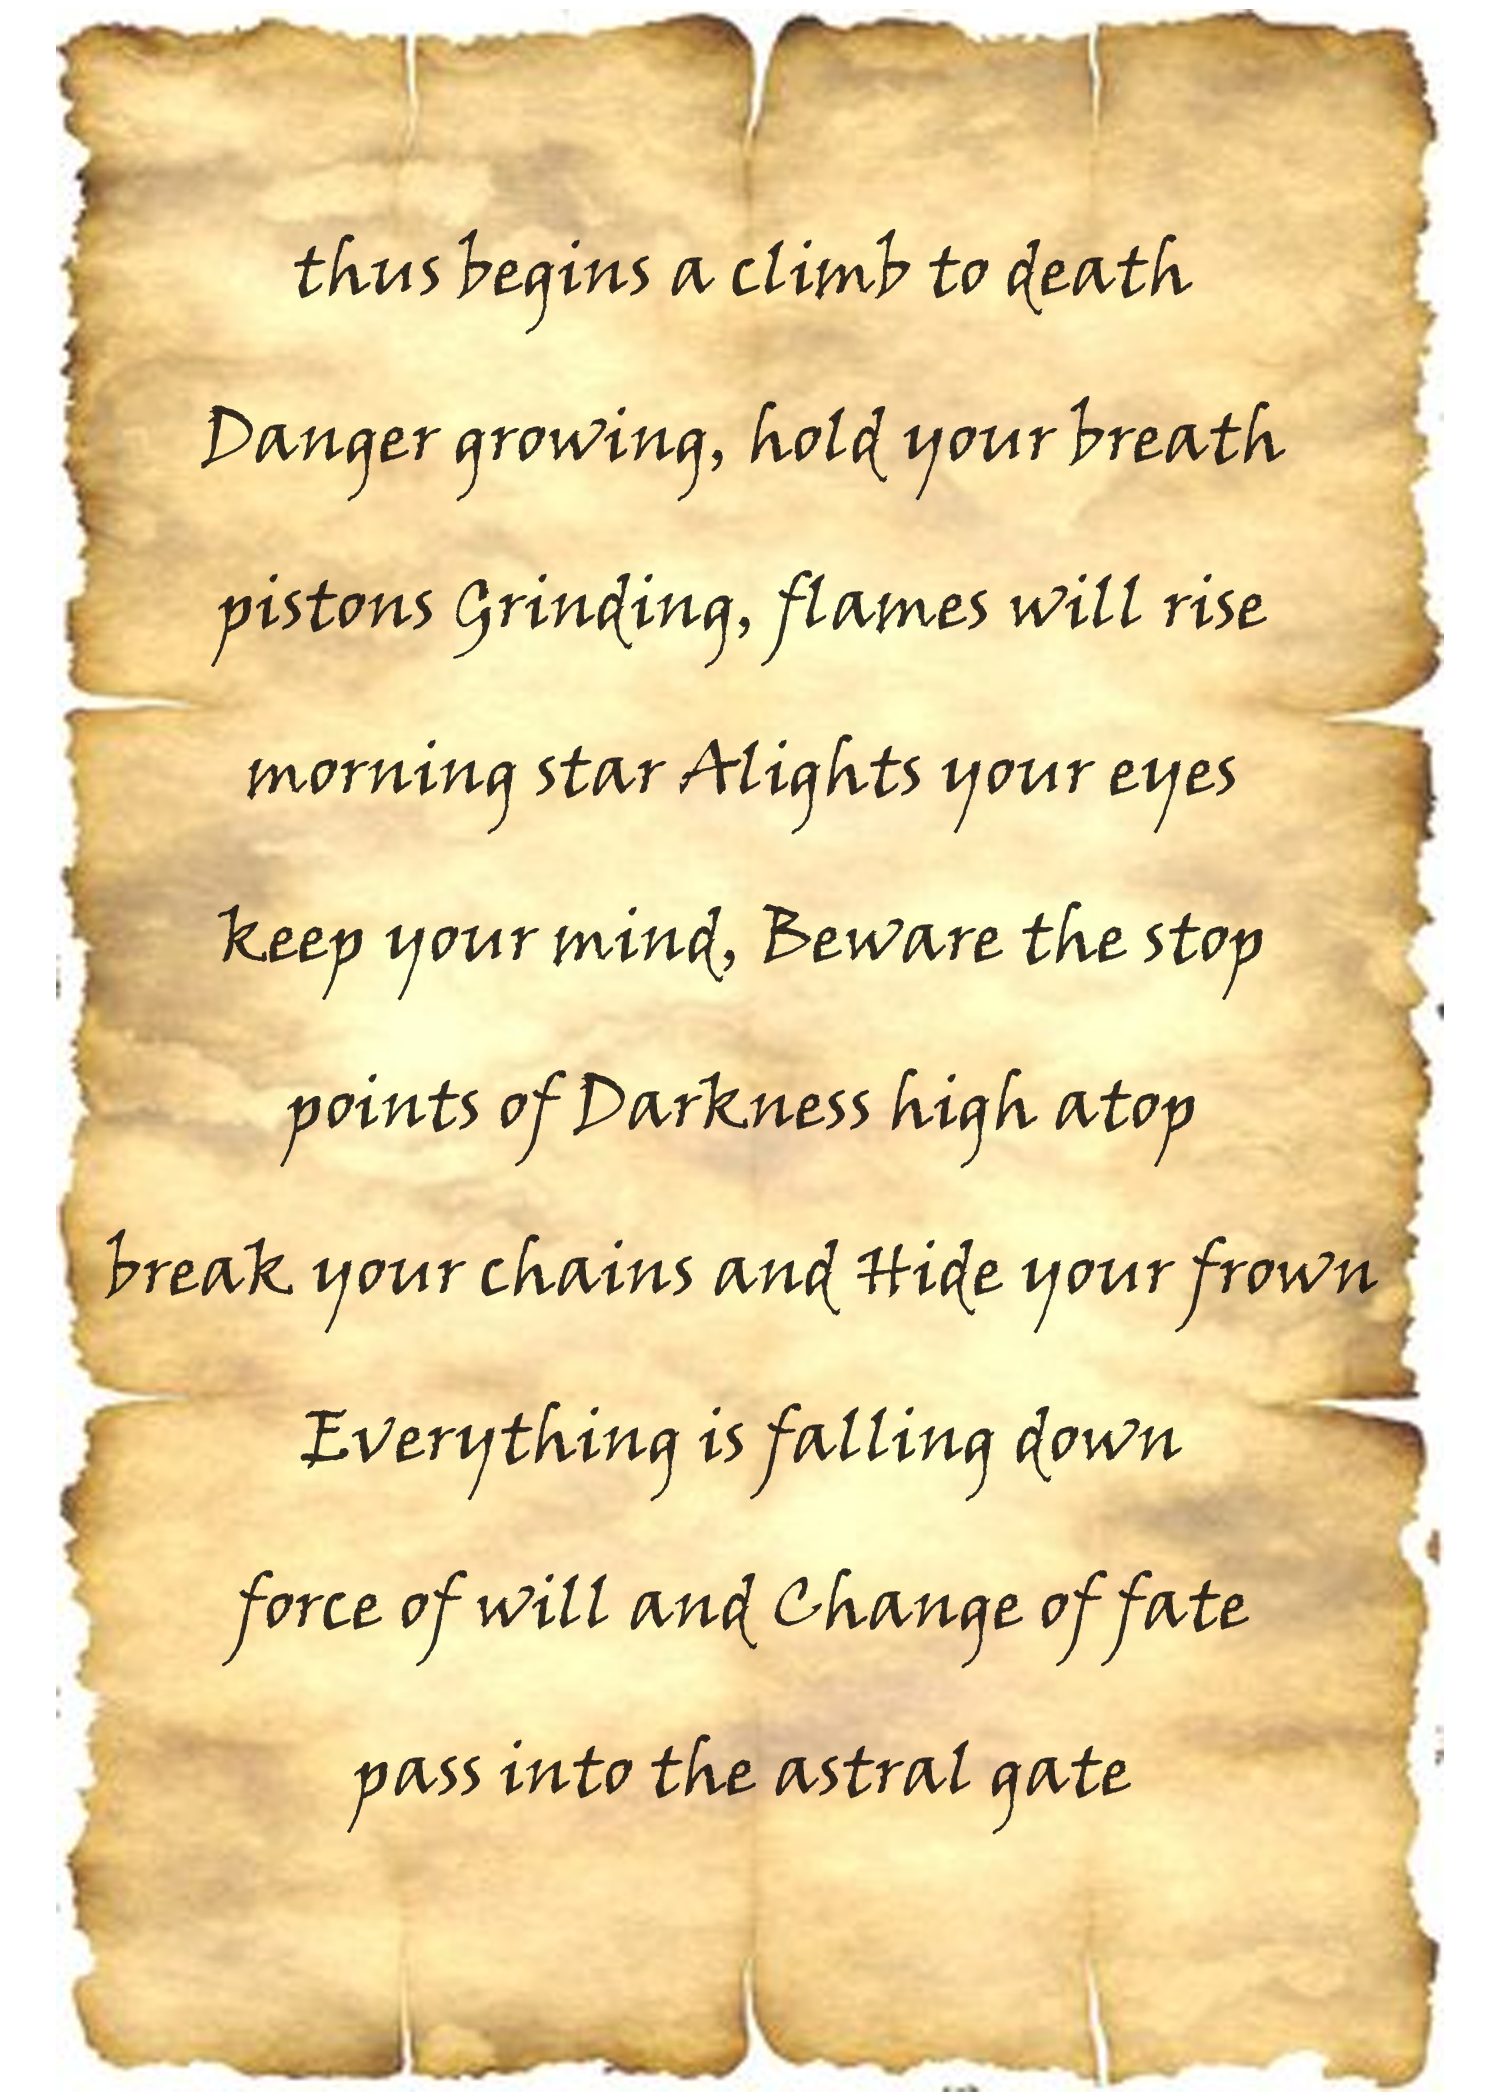 thus begins a climb to death
Danger growing, hold your breath
pistons Grinding, flames will rise
morning star Alights your eyes
keep your mind, Beware the stop
points of Darkness high atop
break your chains and Hide your frown
Everything is falling down
force of will and Change of fate
pass into the astral gate